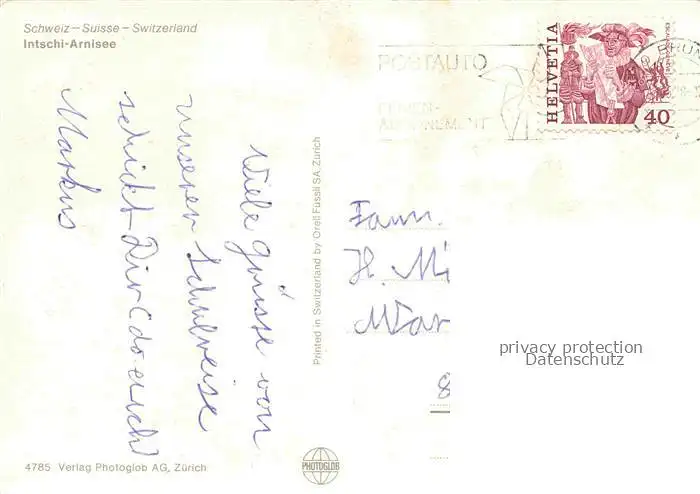 Schweiz – Suisse – Switzerland
Intschi-Arnisee
POSTAUTO
FERIEN-
ABONNEMENT
HELVETIA
40
Viele Grüsse von
unserer Schulreise
schickt Dir (do. euch)
Markus
Printed in Switzerland by Orell Füssli SA, Zürich
Fam.
H. Mi
War
8
privacy protection
Datenschutz
4785 Verlag Photoglob AG, Zürich
PHOTOGLOB